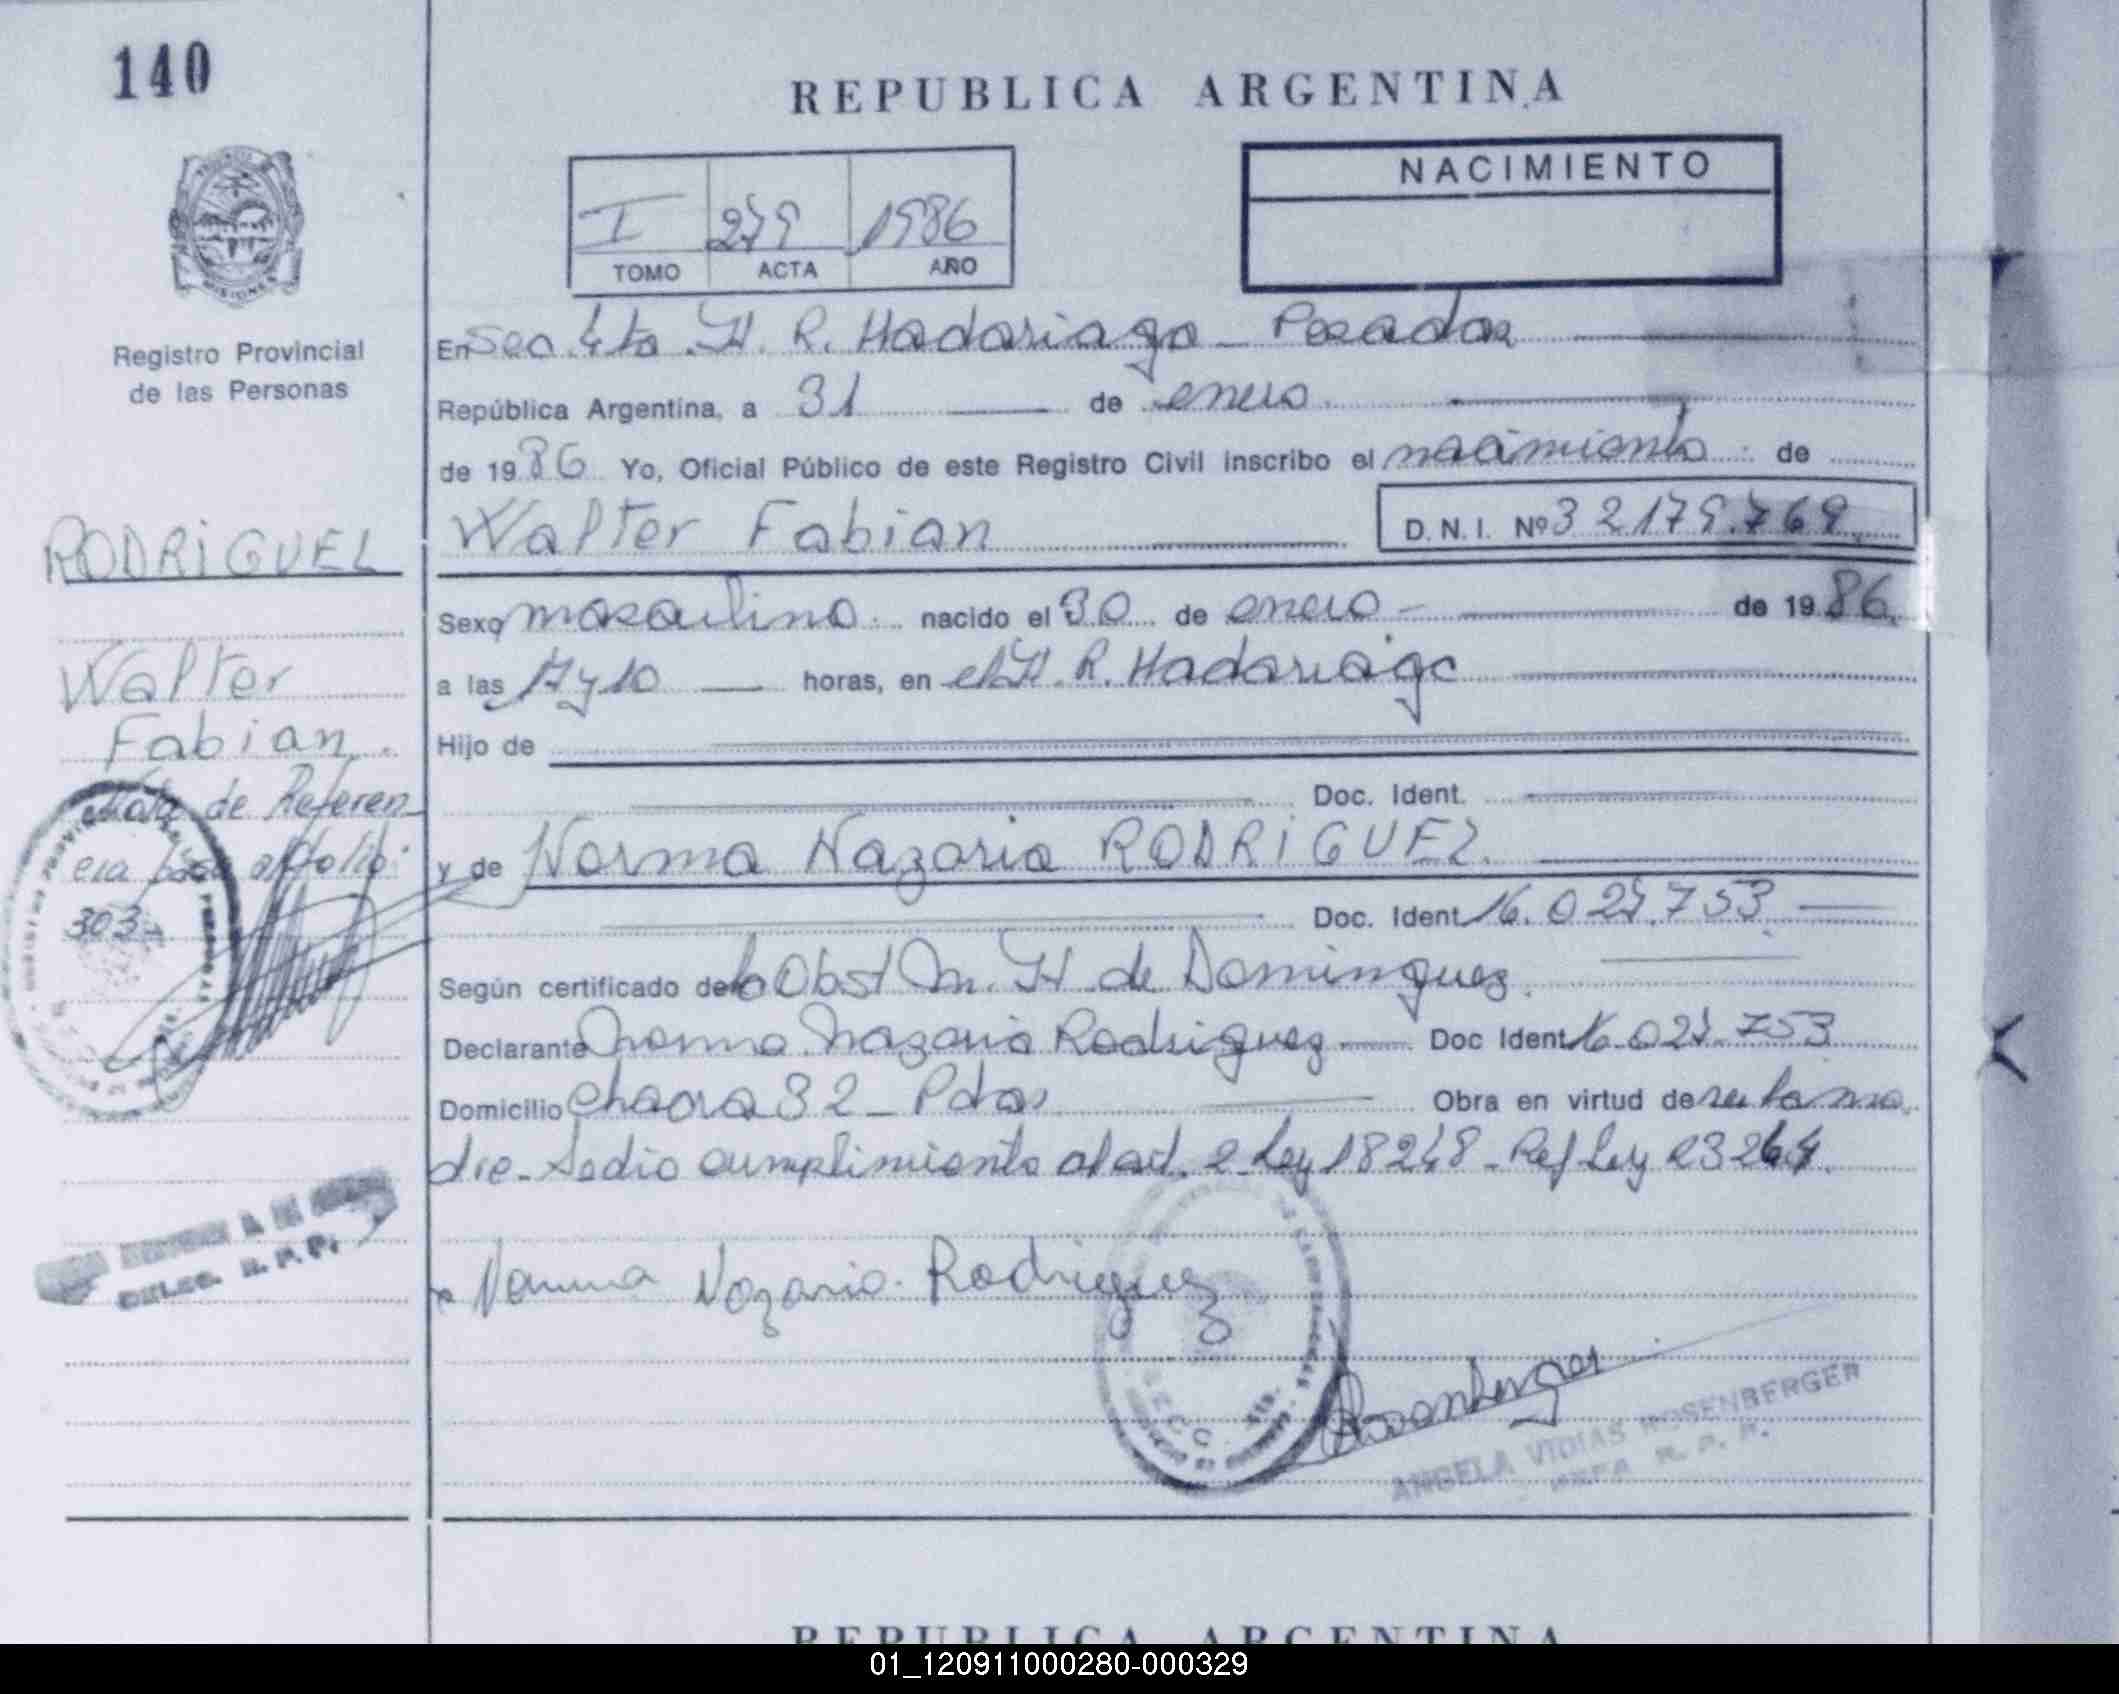 140
REPUBLICA ARGENTINA
NACIMIENTO
I 279 1986
TOMO ACTA AÑO
MISIONES
Registro Provincial
de las Personas
En Sec. 4ta. H. R. Madariaga - Posadas
República Argentina, a 31 de enero
de 1986 Yo, Oficial Público de este Registro Civil inscribo el nacimiento de
RODRIGUEZ
Walter Fabian D.N.I. Nº 32.179.769
Sexo masculino nacido el 30 de enero de 1986
Walter
a las 17 y 10 horas, en el H. R. Madariaga
Fabian
Hijo de
Nota de Referen
Doc. Ident.
cia folio
303
y de Norma Nazaria RODRIGUEZ
Doc. Ident 16.029.753
Según certificado de la Obst M. H. de Dominguez
Declarante Norma Nazaria Rodriguez Doc Ident 16.029.753
Domicilio Chacra 32 - Pdas Obra en virtud de ser la ma
dre - Se dio cumplimiento al art. 2 Ley 18248 - Ref Ley 23264
DELEG. R. P. P.
Norma Nazaria Rodriguez
Rosenberger
ANGELA VIDIAS ROSENBERGER
JEFA R. P. P.
REPUBLICA ARGENTINA
01_120911000280-000329